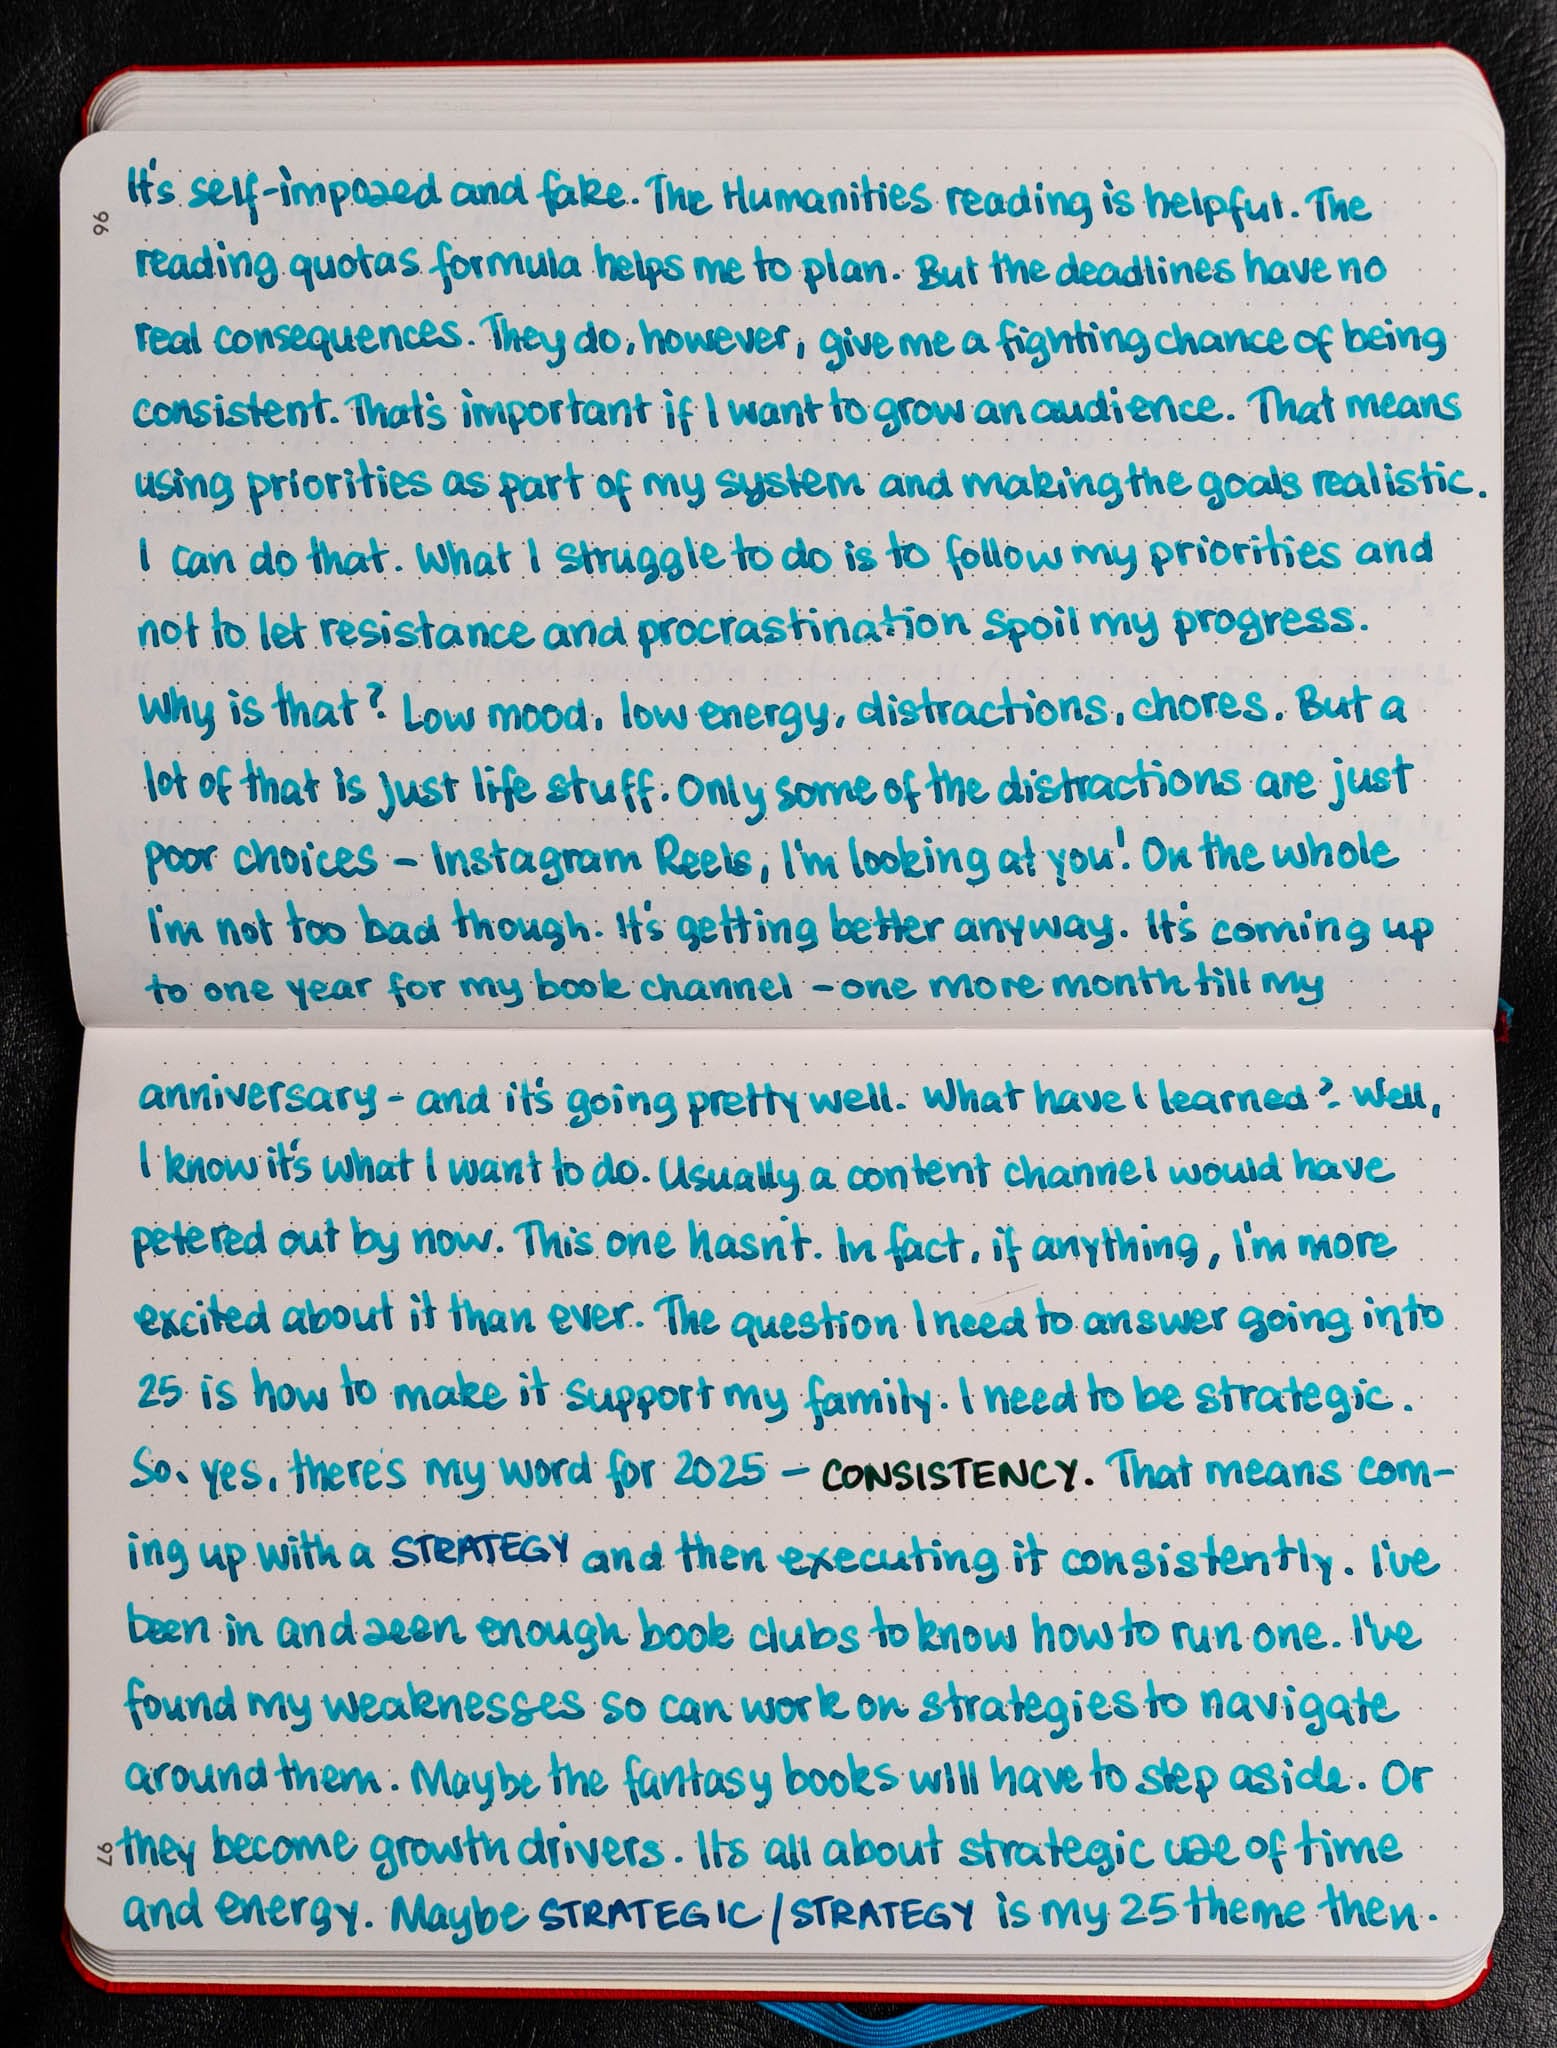 96
It's self-imposed and fake. The Humanities reading is helpful. The
reading quotas formula helps me to plan. But the deadlines have no
real consequences. They do, however, give me a fighting chance of being
consistent. That's important if I want to grow an audience. That means
using priorities as part of my system and making the goals realistic.
I can do that. What I struggle to do is to follow my priorities and
not to let resistance and procrastination spoil my progress.
Why is that? Low mood, low energy, distractions, chores. But a
lot of that is just life stuff. Only some of the distractions are just
poor choices – Instagram Reels, I'm looking at you! On the whole
I'm not too bad though. It's getting better anyway. It's coming up
to one year for my book channel – one more month till my
anniversary – and it's going pretty well. What have I learned? Well,
I know it's what I want to do. Usually a content channel would have
petered out by now. This one hasn't. In fact, if anything, I'm more
excited about it than ever. The question I need to answer going into
25 is how to make it support my family. I need to be strategic.
So, yes, there's my word for 2025 – CONSISTENCY. That means com-
ing up with a STRATEGY and then executing it consistently. I've
been in and seen enough book clubs to know how to run one. I've
found my weaknesses so can work on strategies to navigate
around them. Maybe the fantasy books will have to step aside. Or
they become growth drivers. Its all about strategic use of time
97
and energy. Maybe STRATEGIC/STRATEGY is my 25 theme then.